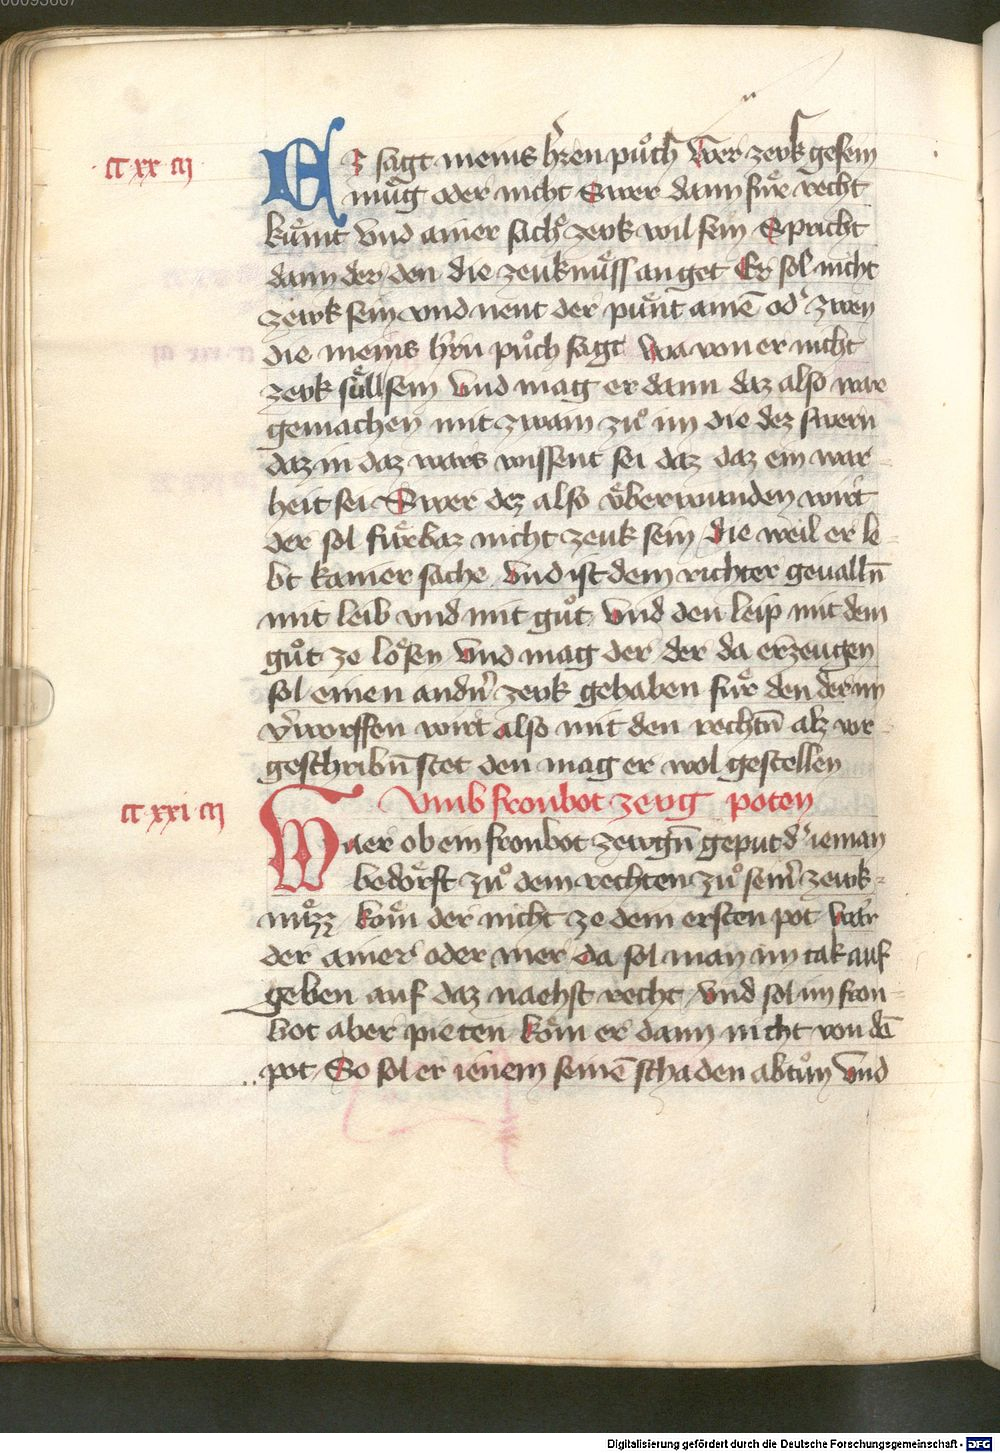 00093667
· cc · xx · iij ·
Ez sagt meins h̾ren pu᷎ch wer zeuk gesein
müg oder nicht Swer dann für recht
kümt vnd ainer sach zeuk wil sein Spricht
dann der den die zeuknüss an get Er sol nicht
zewk sein vnd nent der punt ainē od̾ zwen
die meins h̾rn puͦch sagt wa von er nicht
zeuk süll sein vnd mag er dann daz also war
gemachen mit zwain zuͦ im die dez swern
daz in daz wars wissent sei daz daz ein war
heit sei Swer dez also überwunden wirt
der sol fürbaz nicht zeuk sein die weil er le
bt kainer sache vnd ist dem richter geualln̄
mit leib vnd mit guͦt vnd den leip mit dem
guͦt ze lösen vnd mag der der da erzeugen
sol einen andn̾ zeuk gehaben für den der im
v̾worffen wirt also mit den rechtn̄ alz vor
geschribn̄ stet den mag er wol gestellen
cc · xxi · iij
Vmb fronbot zeug poten
Waer ob ein fronbot zewgn̄ geput d̾ ieman
bedörft zuͦ dem rechten zuͦ sein̾ zewk-
nüzz köm der nicht ze dem ersten pot waer
der ainer oder mer da sol man im tak auf
geben auf daz naehst recht vnd sol im fron-
bot aber pieten köm er dann nicht von dē
pot So sol er ienem seinē schaden abtuͦn vnd
Digitalisierung gefördert durch die Deutsche Forschungsgemeinschaft - DFG